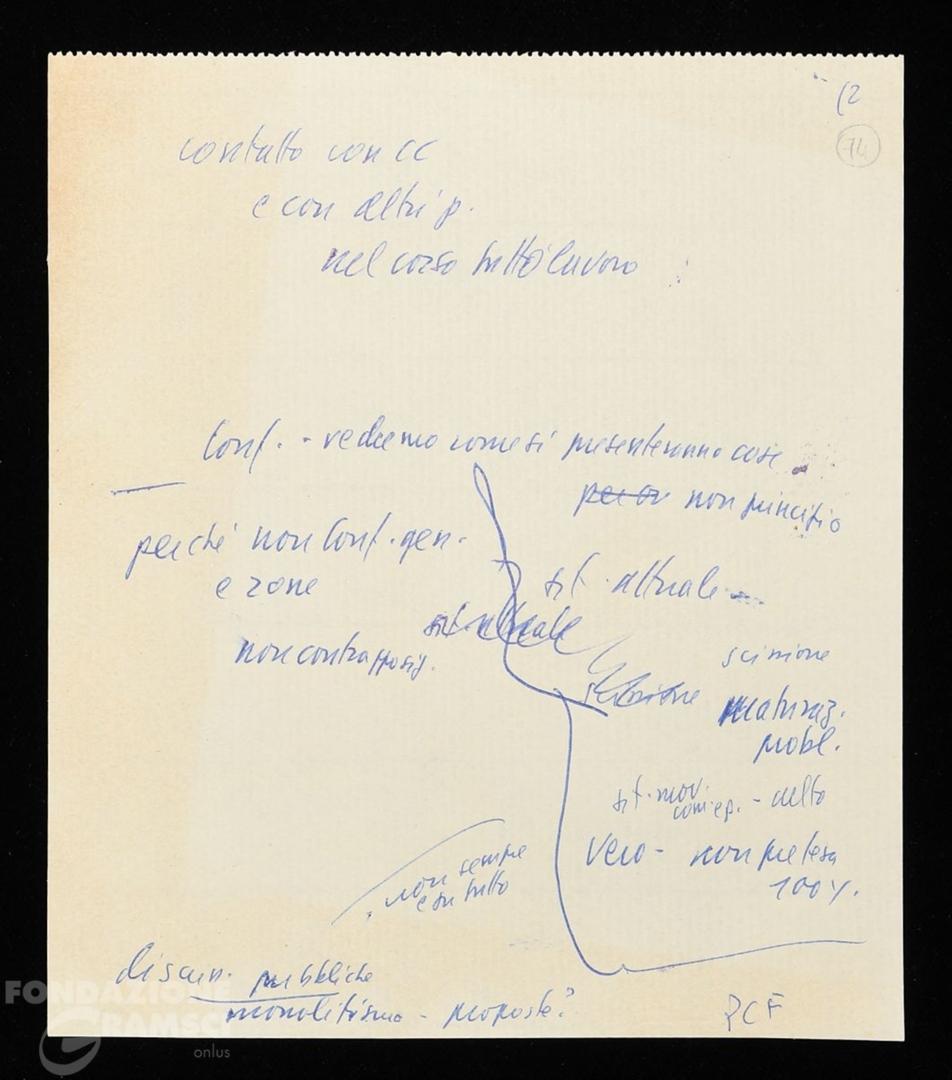 (2
74
contatto con CC
e con altri p.
nel corso tutto lavoro
Conf. - vedremo come si presenteranno cose
per or non principio
perché non Conf. gen.
e zone
sit. attuale
sit. attuale
non contrapposiz.
scissione
scissione
maturaz.
probl.
sit. mov.
com. ep. - detto
Vero - non pretesa
100%.
non sempre
e su tutto
discuss. pubbliche
monolitismo - proposte?
PCF
FONDAZIONE
GRAMSCI
onlus